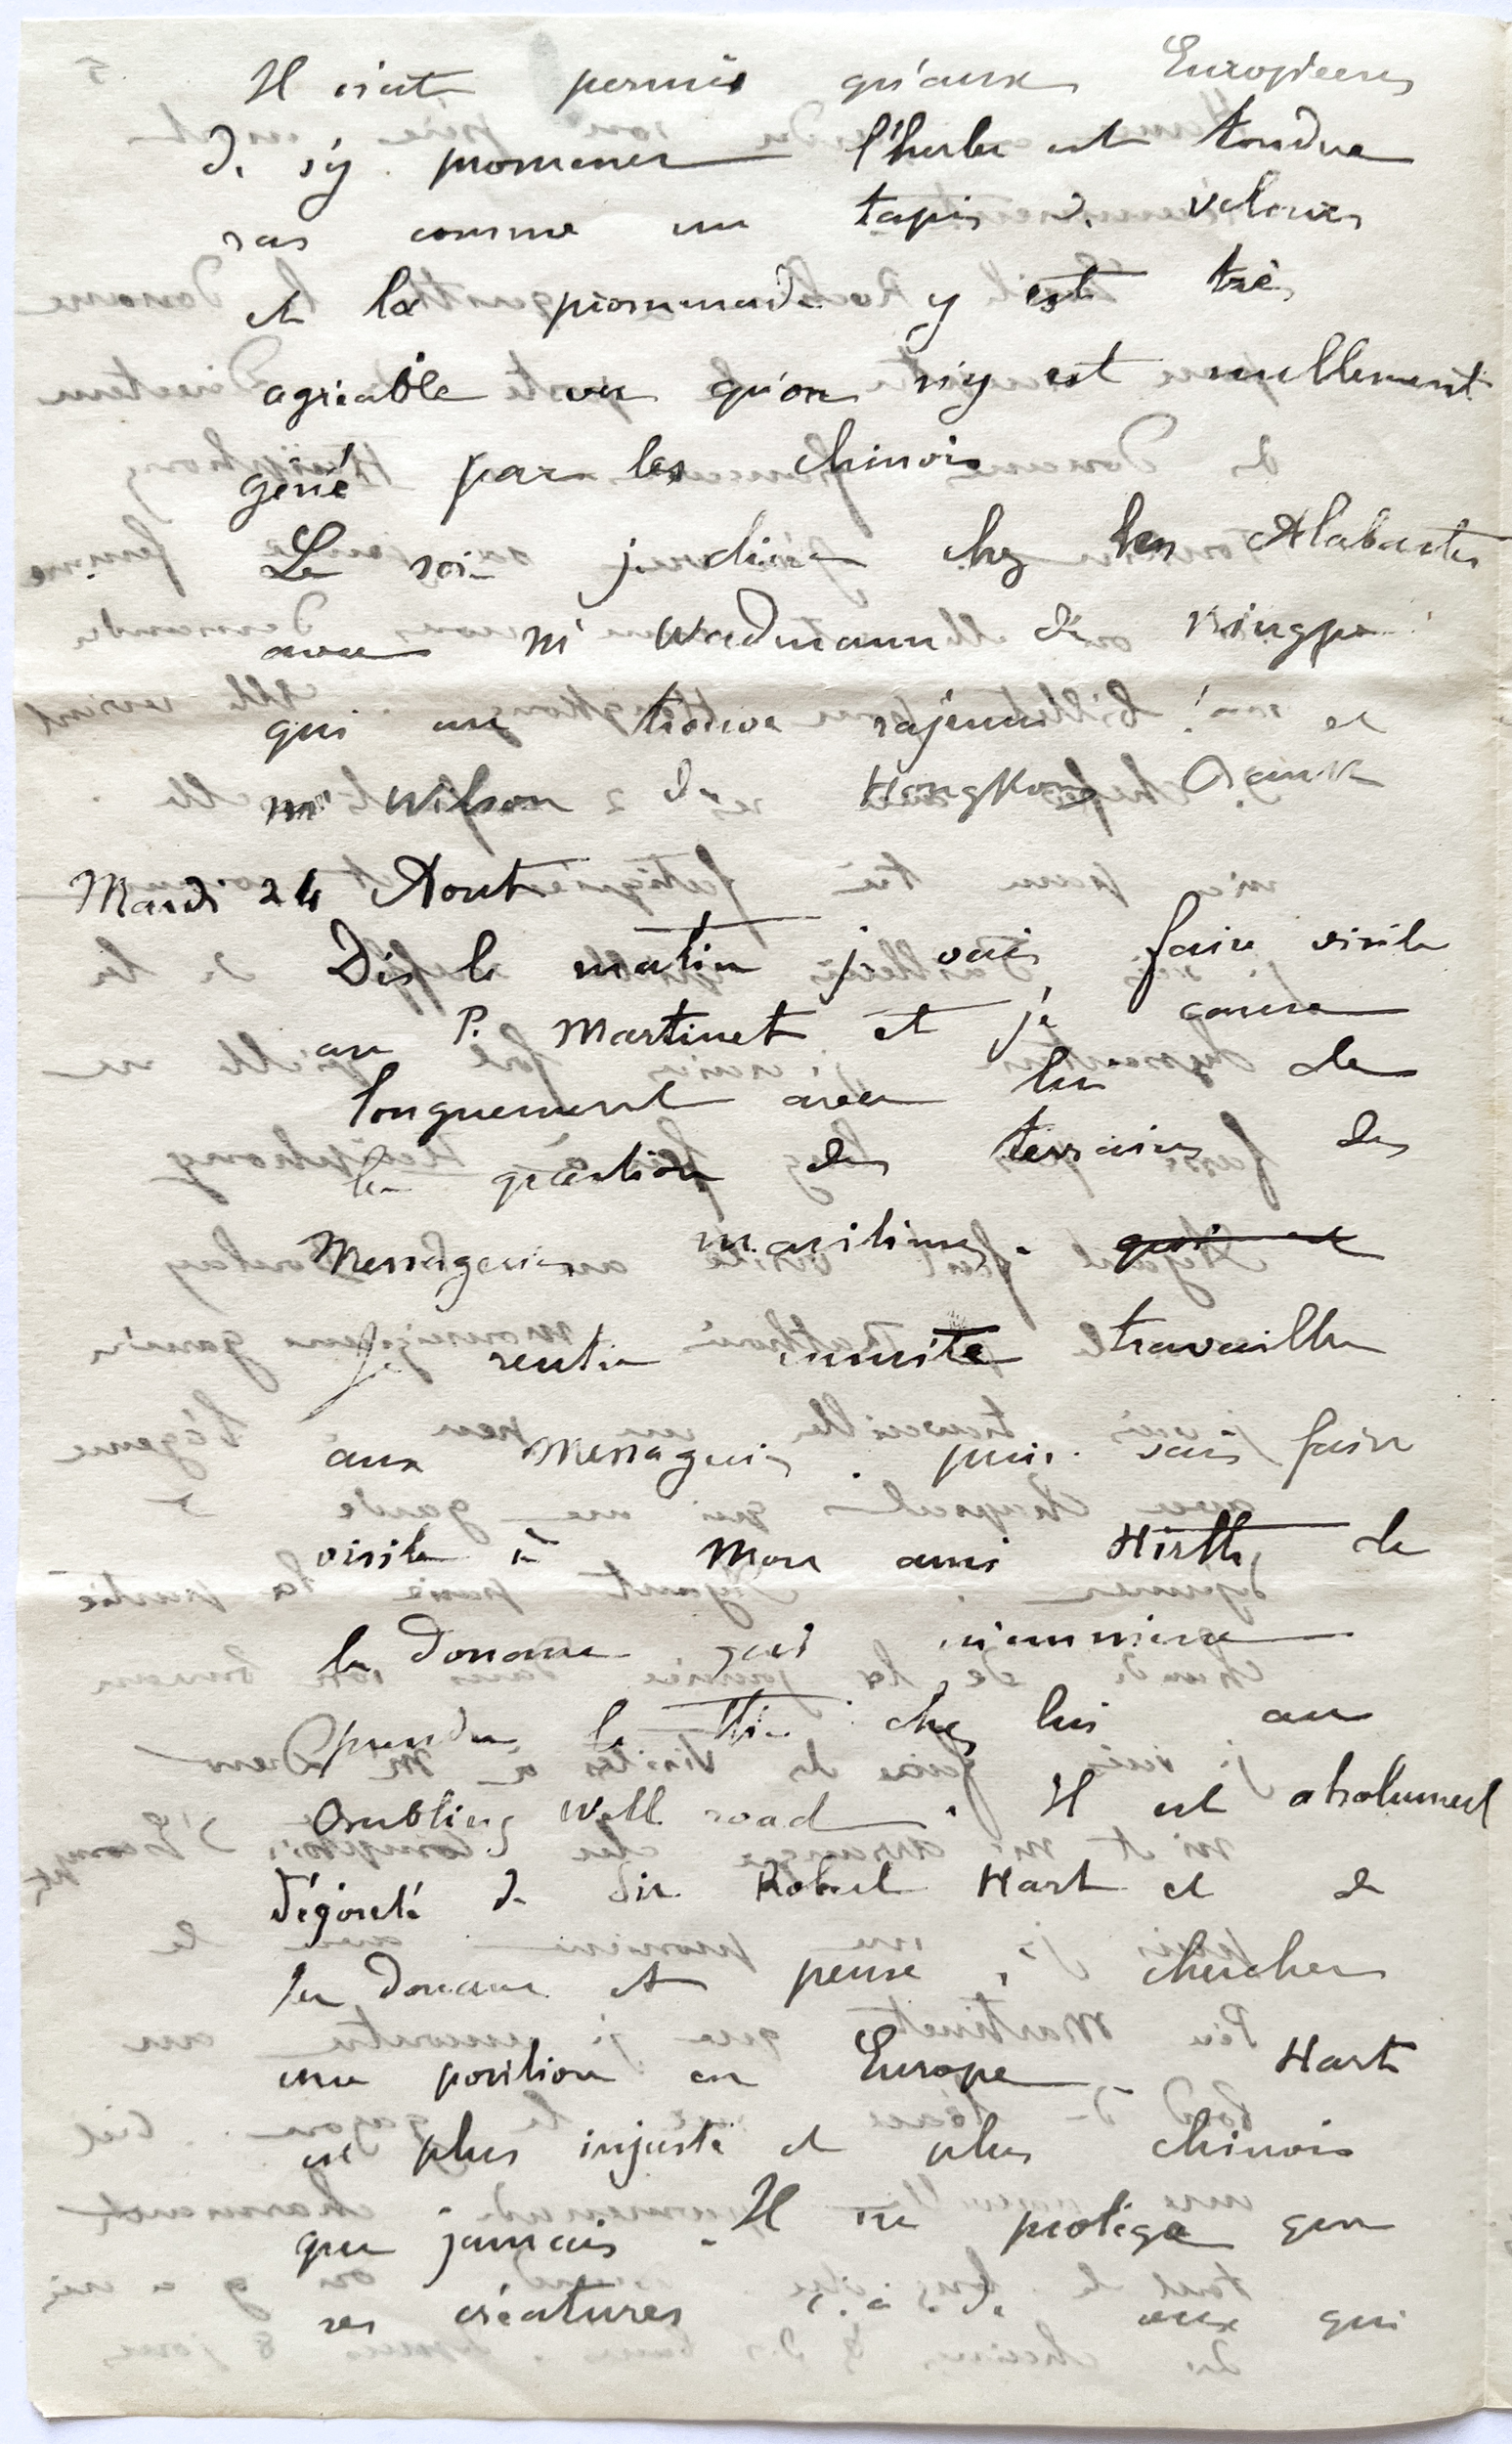 Il n'est permis qu'aux Européens
de s'y promener l'herbe est tondue
ras comme un tapis de velours
et la promenade y est très
agréable vu qu'on n'y est nullement
gêné par les chinois
Le soir je dîne chez les Alabaster
avec Mr Wadmann de Ningpo
qui me trouve rajeuni ! et
Mr Wilson de HongKong Bank
Mardi 24 Aout
Dès le matin je vais faire visite
au P. Martinet et je cause
longuement avec lui de
la question des terrains des
Messageries maritimes. qui est
Je rentre ensuite travailler
aux Messageries. puis vais faire
visite à Mon ami Hirth, de
la Douane qui m'emmène
prendre le thé chez lui au
Bubling Well road. Il est absolument
dégouté de Sir Robert Hart et de
la Douane et pense à chercher
une position en Europe. Hart
est plus injuste et plus chinois
que jamais. Il ne protège que
ses créatures c. à. d. ceux qui